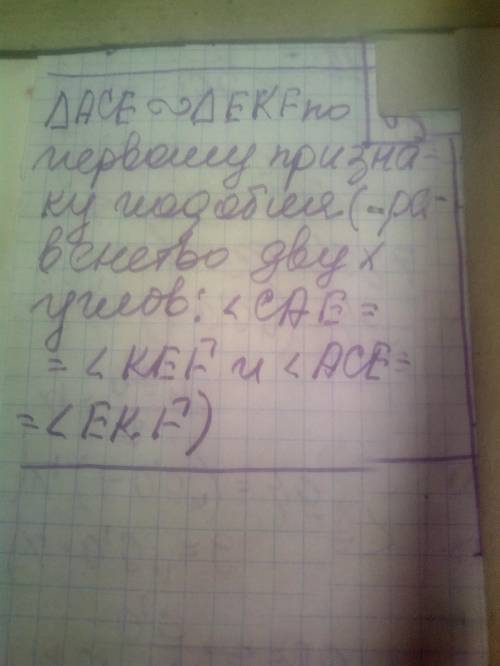 ΔACE ∾ ΔEKF по
первому призна-
ку подобия (-ра-
венство двух
углов: <CAE =
= <KEF и <ACE =
= <EKF)